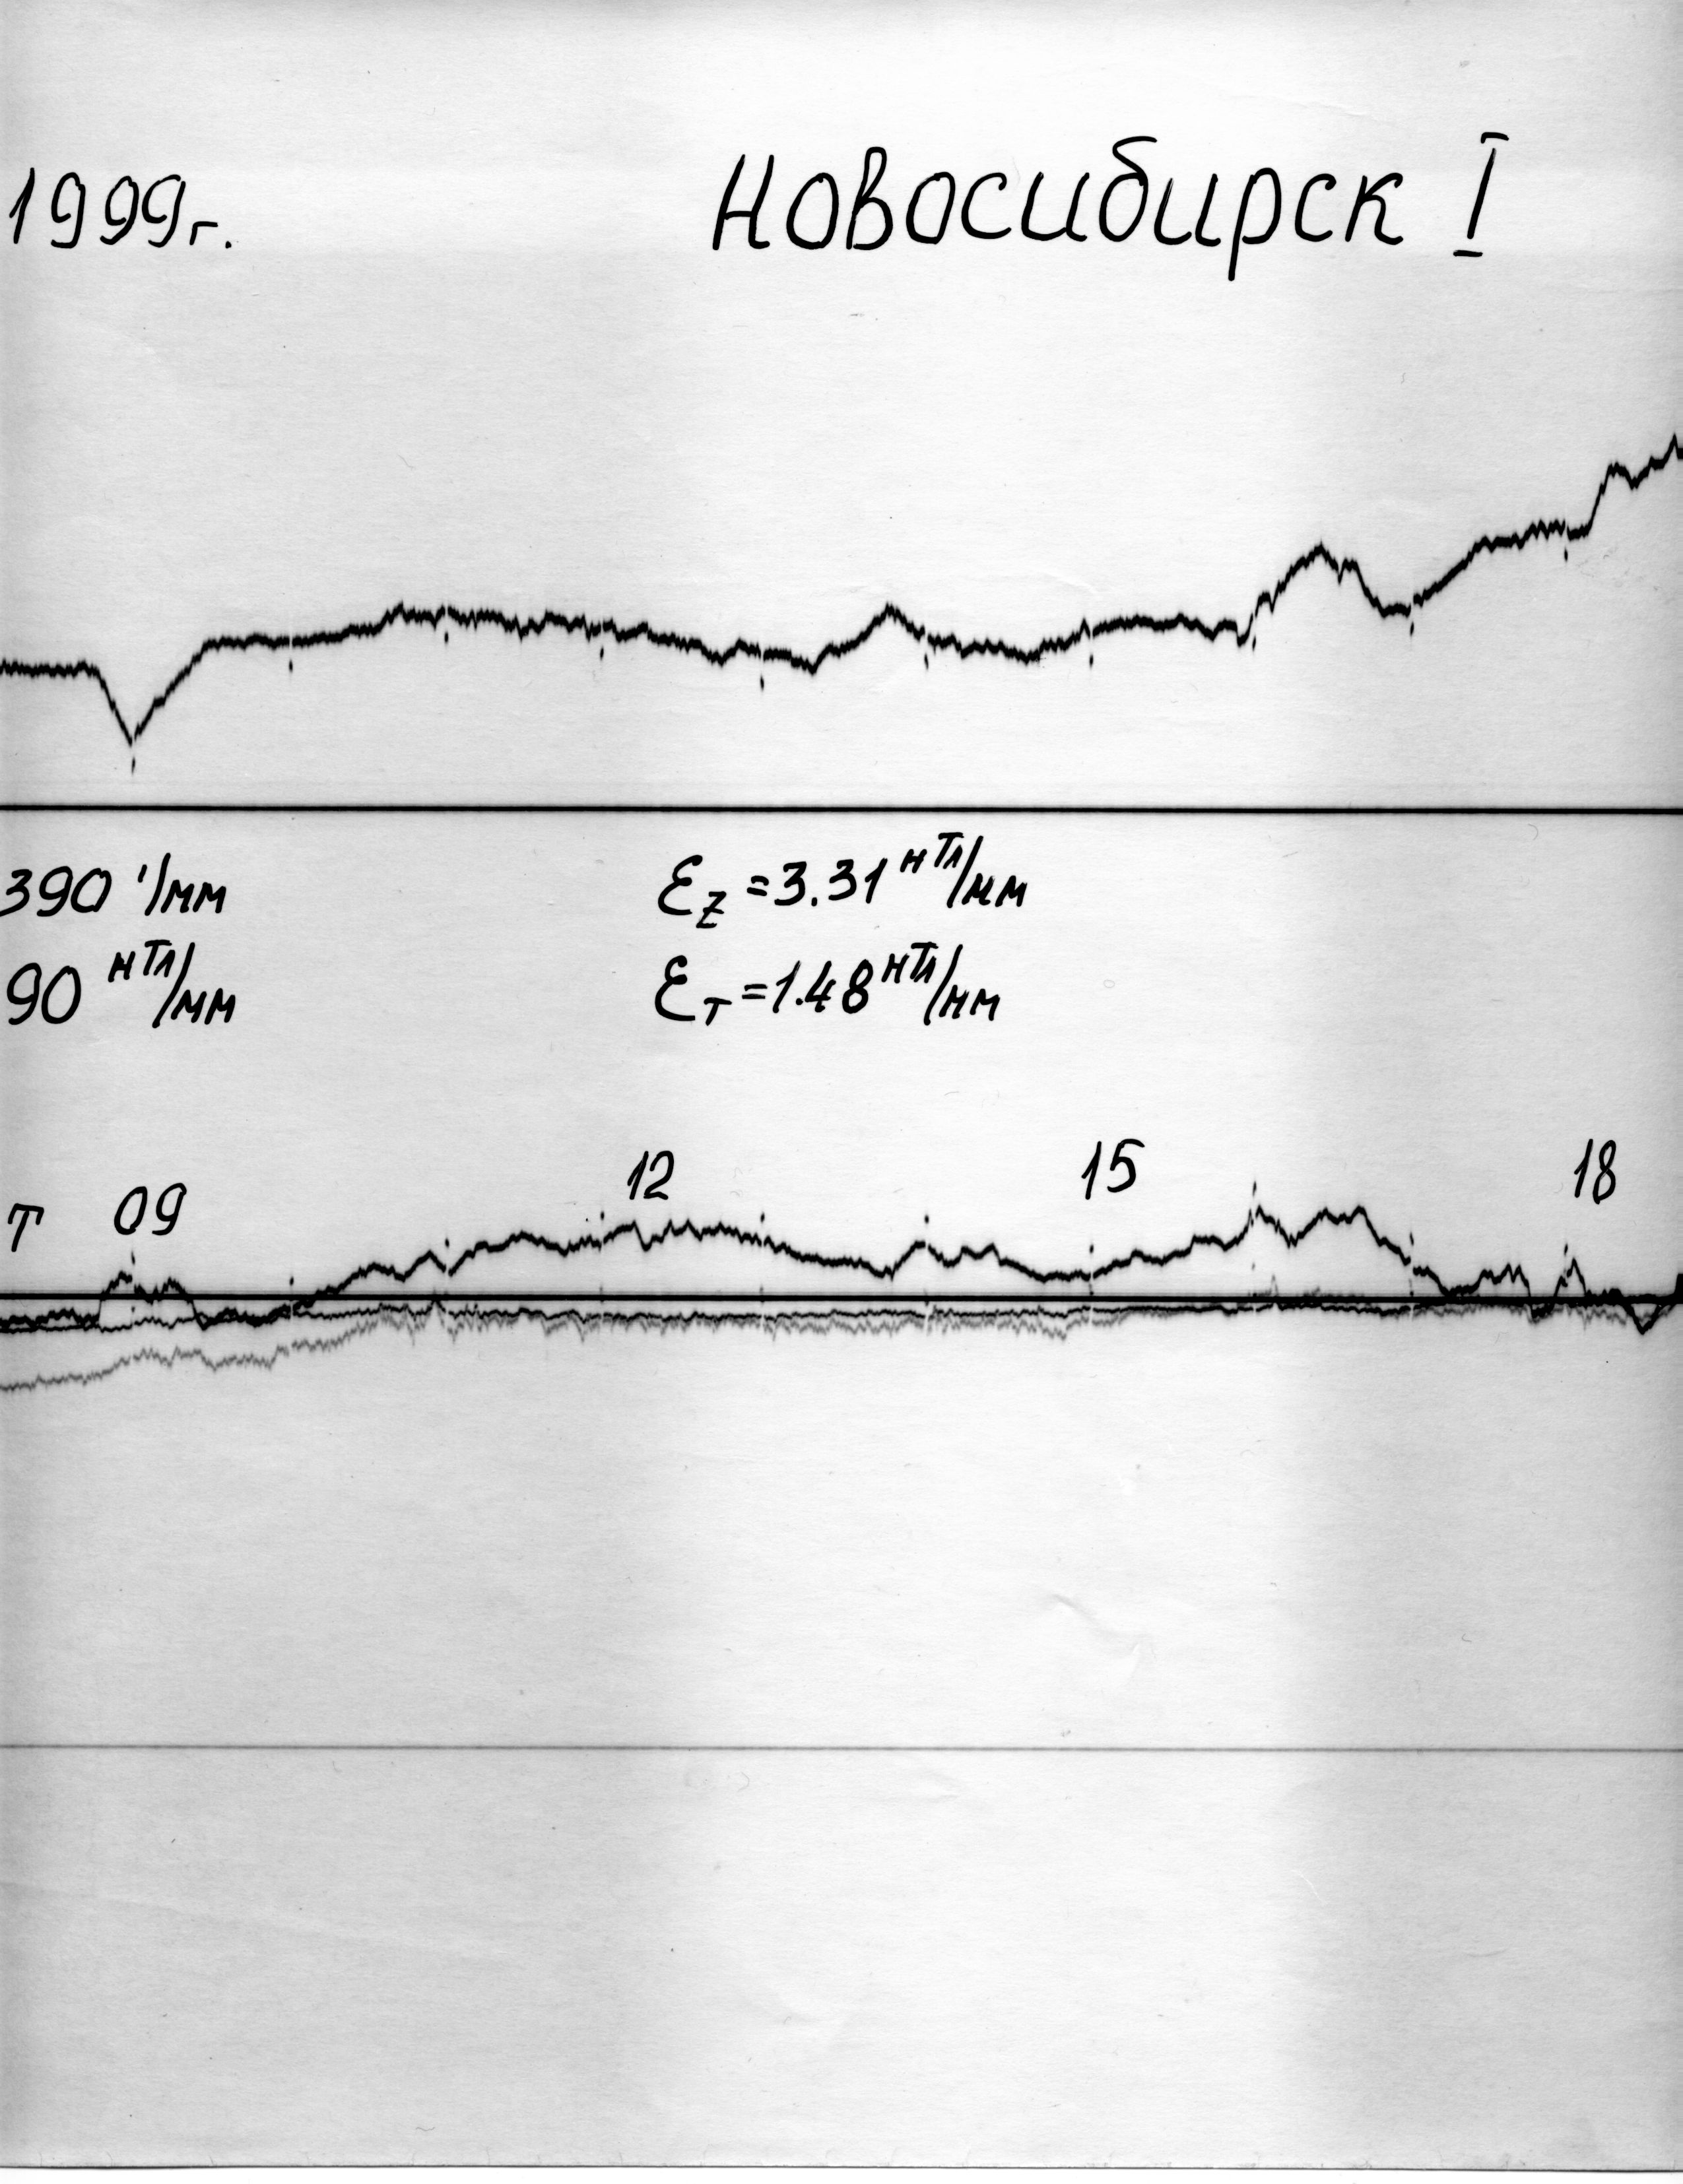 1999г. Новосибирск I
390 '/мм εz = 3.31 нТл/мм
90 нТл/мм εт = 1.48 нТл/мм
12 15 18
т 09